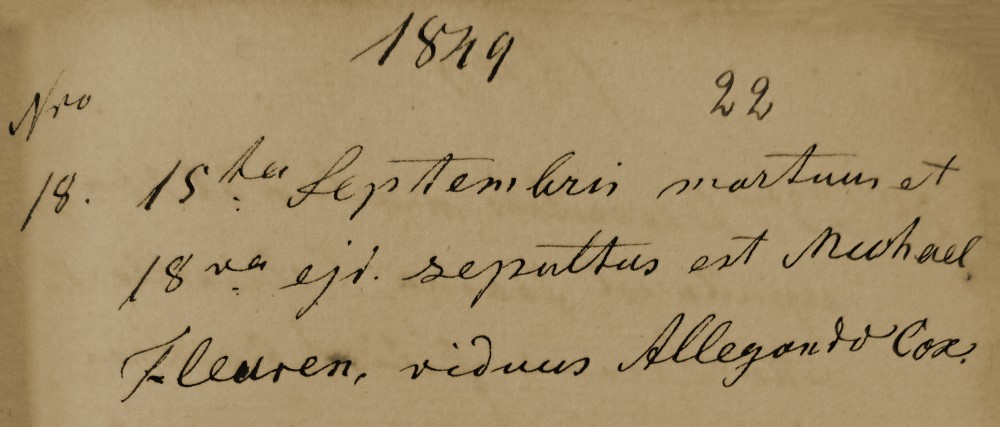 1849
22
Nro
18. 15ta Septembris mortuus et
18va ejd. sepultus est Michael
Fleuren, viduus Allegondo Cox.